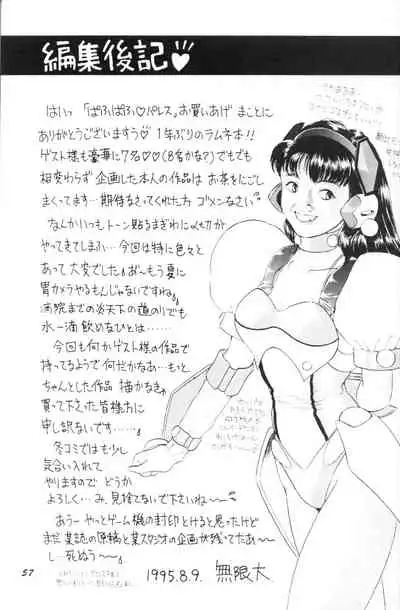 編集後記♡
はいっ「ぱふぱふ♡パレス」お買いあげ まことに
ありがとうございますう♡ 1年ぶりのラムネ本!!
ゲスト様も豪華に7名♡♡(8名かな?)でもでも
相変わらず 企画した本人の作品は お茶をにごし
まくってます… 期待なさってくれた方 ゴメンなさい
なんかいつもトーン貼るまぎわに〆切が
やってきてしまふ… 今回は特に色々と
あって大変でした。お〜もう夏に
胃カメラやるもんじゃないですね。
病院までの炎天下の道のりでも
水一滴飲めないとは……
今回も何かゲスト様の作品で
持ってるようで何だかなあ…もっと
ちゃんとした作品 描かなきゃ
買って下さった皆様おに
申し訳ないです……。
冬コミではも少し
気合い入れて
やりますので どうか
よろしく…み、見捨てないで下さいね〜
あうー やっとゲーム機の封印とけると思ったけど
まだ 某誌の原稿と某スタジオの企画が残ってたあ〜
し…死ぬう〜
1995.8.9. 無限大
57